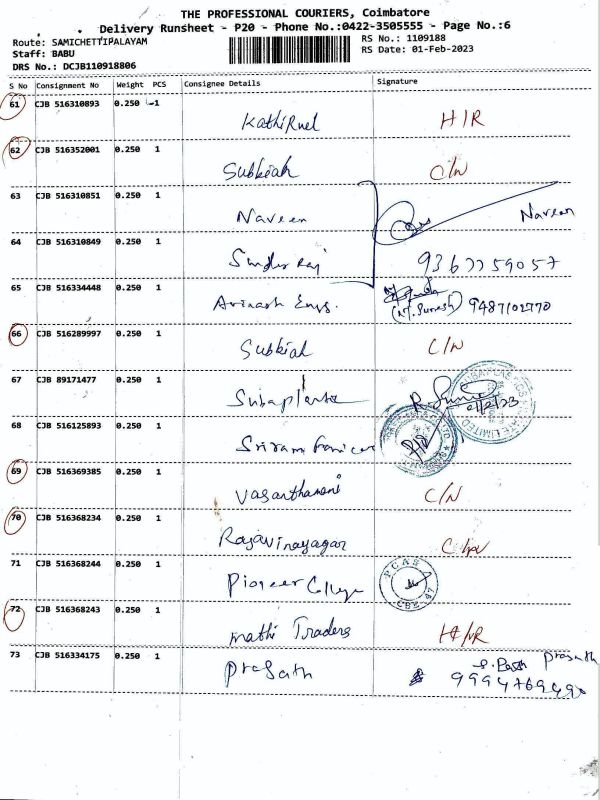 THE PROFESSIONAL COURIERS, Coimbatore
Delivery Runsheet - P20 - Phone No.:0422-3505555 - Page No.:6
Route: SAMICHETTIPALAYAM RS No.: 1109188
Staff: BABU RS Date: 01-Feb-2023
DRS No.: DCJB110918806
S No Consignment No Weight PCS Consignee Details Signature
61 CJB 516310893 0.250 1 Kathirvel H/R
62 CJB 516352001 0.250 1 Subbiah C/N
63 CJB 516310851 0.250 1 Naveen Naveen
64 CJB 516310849 0.250 1 9367759057
65 CJB 516334448 0.250 1 Avinash Engs. (N. Suresh) 9487102770
66 CJB 516289997 0.250 1 Subbiah C/N
67 CJB 89171477 0.250 1 01/2/23
68 CJB 516125893 0.250 1 Sriram
69 CJB 516369385 0.250 1 Vasanthamani C/N
70 CJB 516368234 0.250 1 Rajavinayagar
71 CJB 516368244 0.250 1 Pioneer College PCAS
72 CJB 516368243 0.250 1 Mathi Traders H/R
73 CJB 516334175 0.250 1 Prasath Prasath
9994769490